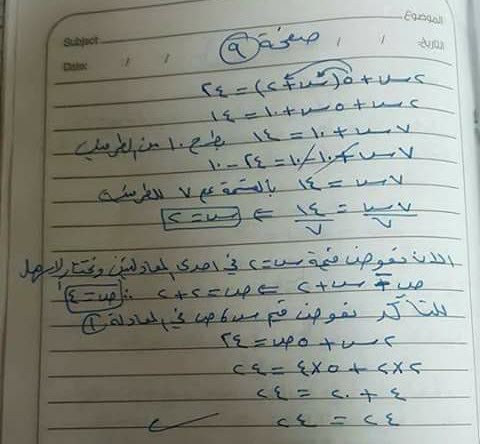 الموضوع
Subject
صفحة ٩
التاريخ / /
Date: / /
٢س + ٥(س + ٢) = ٢٤
٢س + ٥س + ١٠ = ١٤
٧س + ١٠ = ١٤ بطرح ١٠ من الطرفين
٧س + ١٠ - ١٠ = ٢٤ - ١٠
٧س = ١٤ بالقسمة على ٧ للطرفين
٧س/٧ = ١٤/٧ ⇐ س = ٢
الان نعوض قيمة س = ٢ في احدى المعادلتين ونختار الاسهل
ص = س + ٢ ⇐ ص = ٢ + ٢ ∴ ص = ٤
للتأكد نعوض قيم س و ص في المعادلة ١
٢س + ٥ص = ٢٤
٢×٢ + ٥×٤ = ٢٤
٤ + ٢٠ = ٢٤
٢٤ = ٢٤